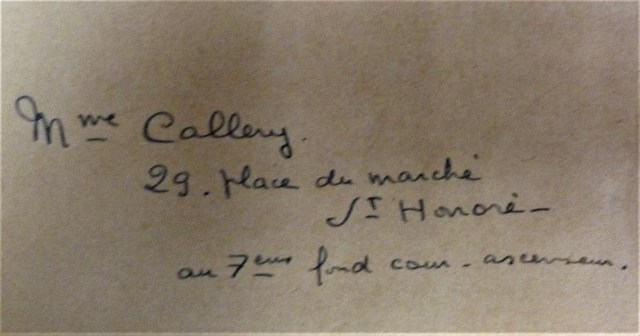 Mme Callery.
29. place du marché
St Honoré -
au 7eme fond cour - ascenseur.